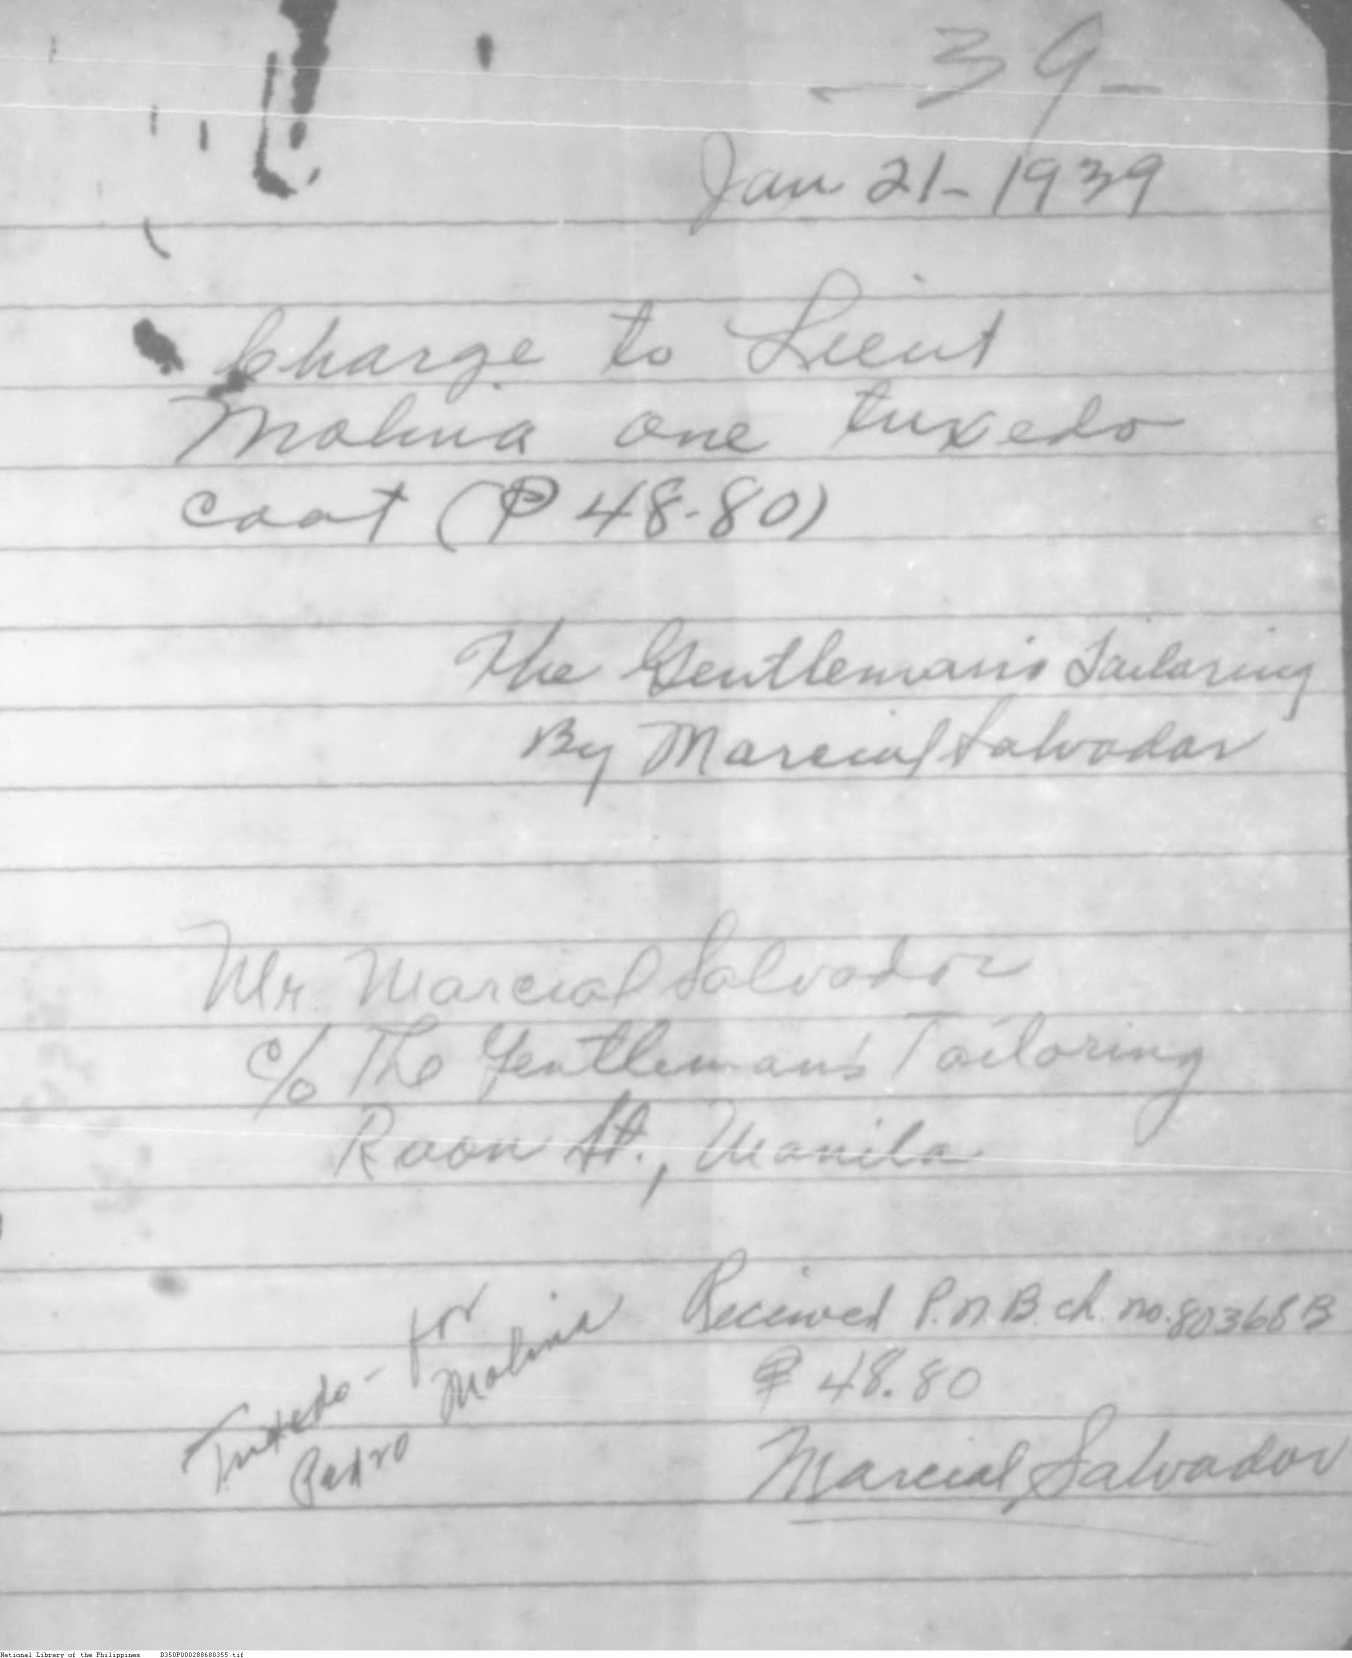 - 39 -
Jan 21-1939
Charge to Lieut
Molina one tuxedo
coat (₱ 48-80)
The Gentleman's Tailoring
By Marcial Salvador
Mr. Marcial Salvador
c/o The Gentleman's Tailoring
Raon St., Manila
Tuxedo - for
Pedro Molina
Received P.N.B. ch. no. 80368B
₱ 48.80
Marcial Salvador
National Library of the Philippines D350P000288680355.tif